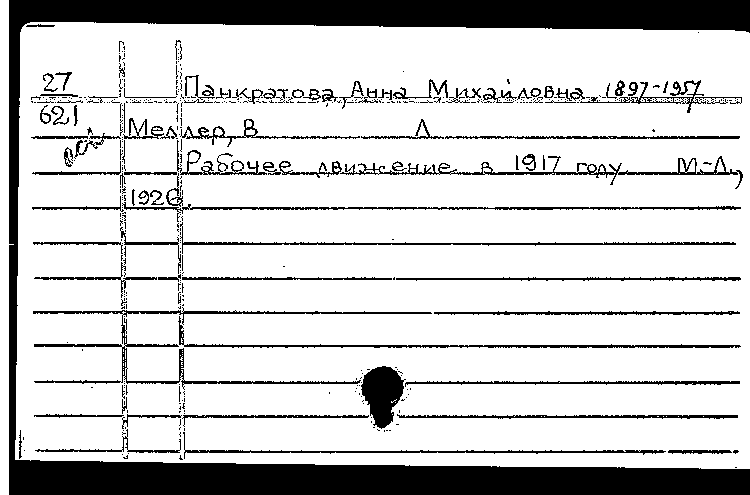 27
621
Панкратова, Анна Михайловна. 1897-1957
Меллер, В Л
Рабочее движение в 1917 году М.-Л.,
1926.